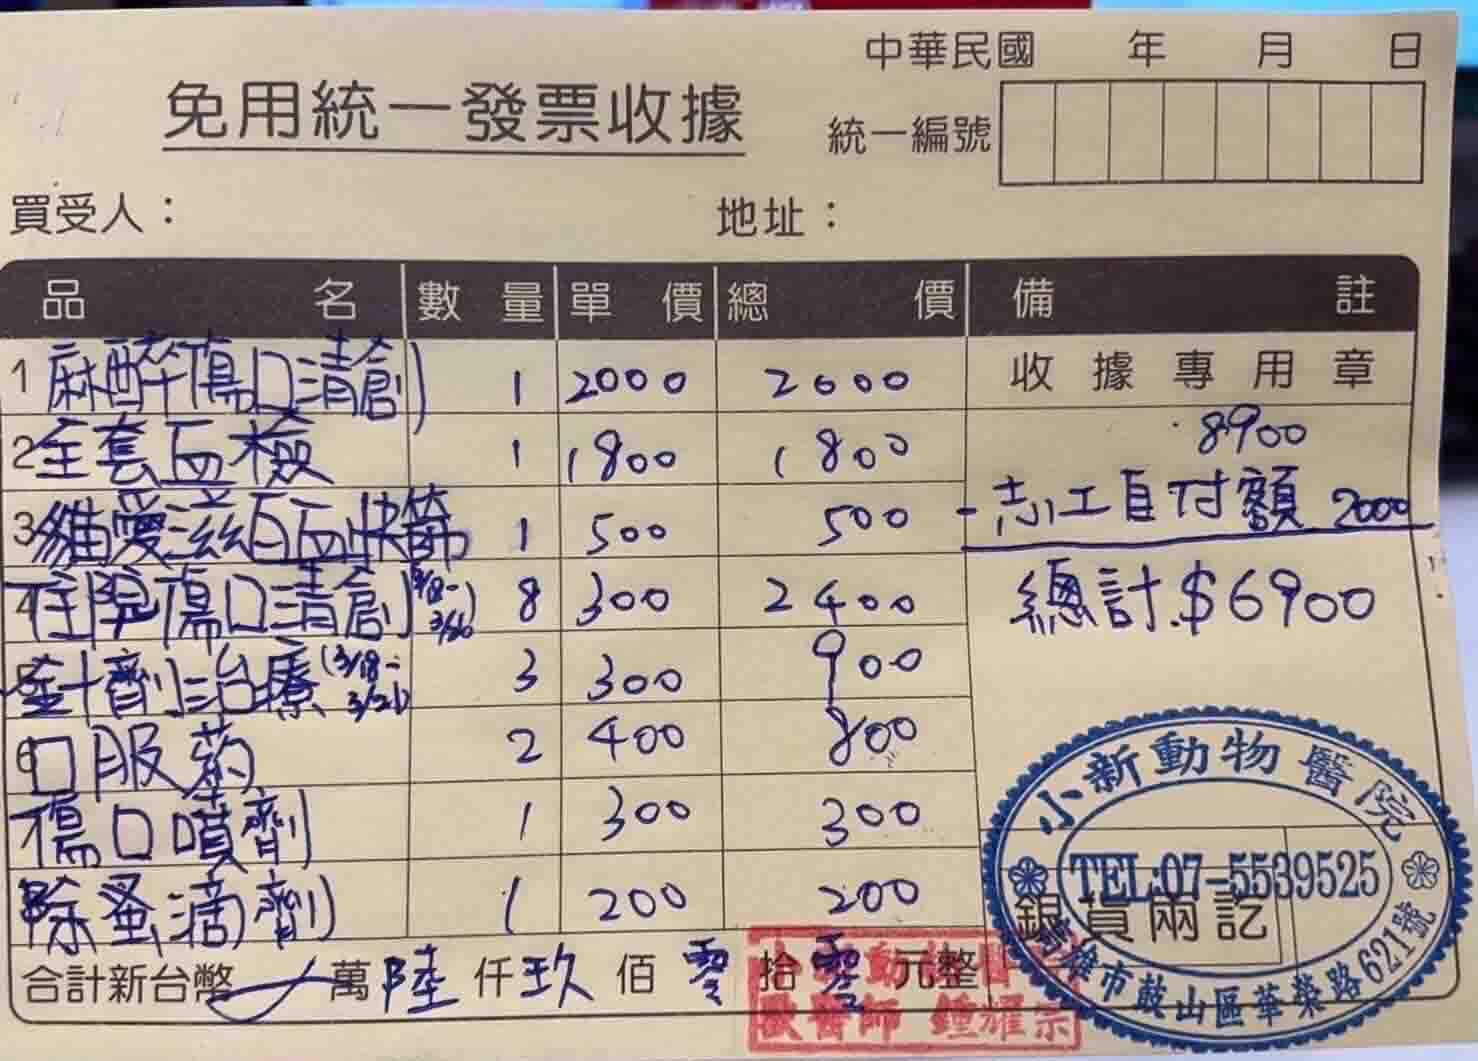 中華民國 年 月 日
免用統一發票收據
統一編號
買受人：
地址：
品名 數量 單價 總價 備註
1 麻醉傷口清創 1 2000 2000
收據專用章
2 全套血檢 1 1800 1800
8900
3 貓愛滋白血快篩 1 500 500
-志工自付額 2000
4 住院傷口清創 (3/18-3/26) 8 300 2400
總計.$6900
5 針劑治療 (3/18-3/21) 3 300 900
6 口服葯 2 400 800
傷口噴劑 1 300 300
除蚤滴劑 1 200 200
銀貨兩訖
合計新台幣 萬陸仟玖佰零拾零元整
小新動物醫院
TEL:07-5539525
高雄市鼓山區華榮路621號
獸醫師 鍾耀宗